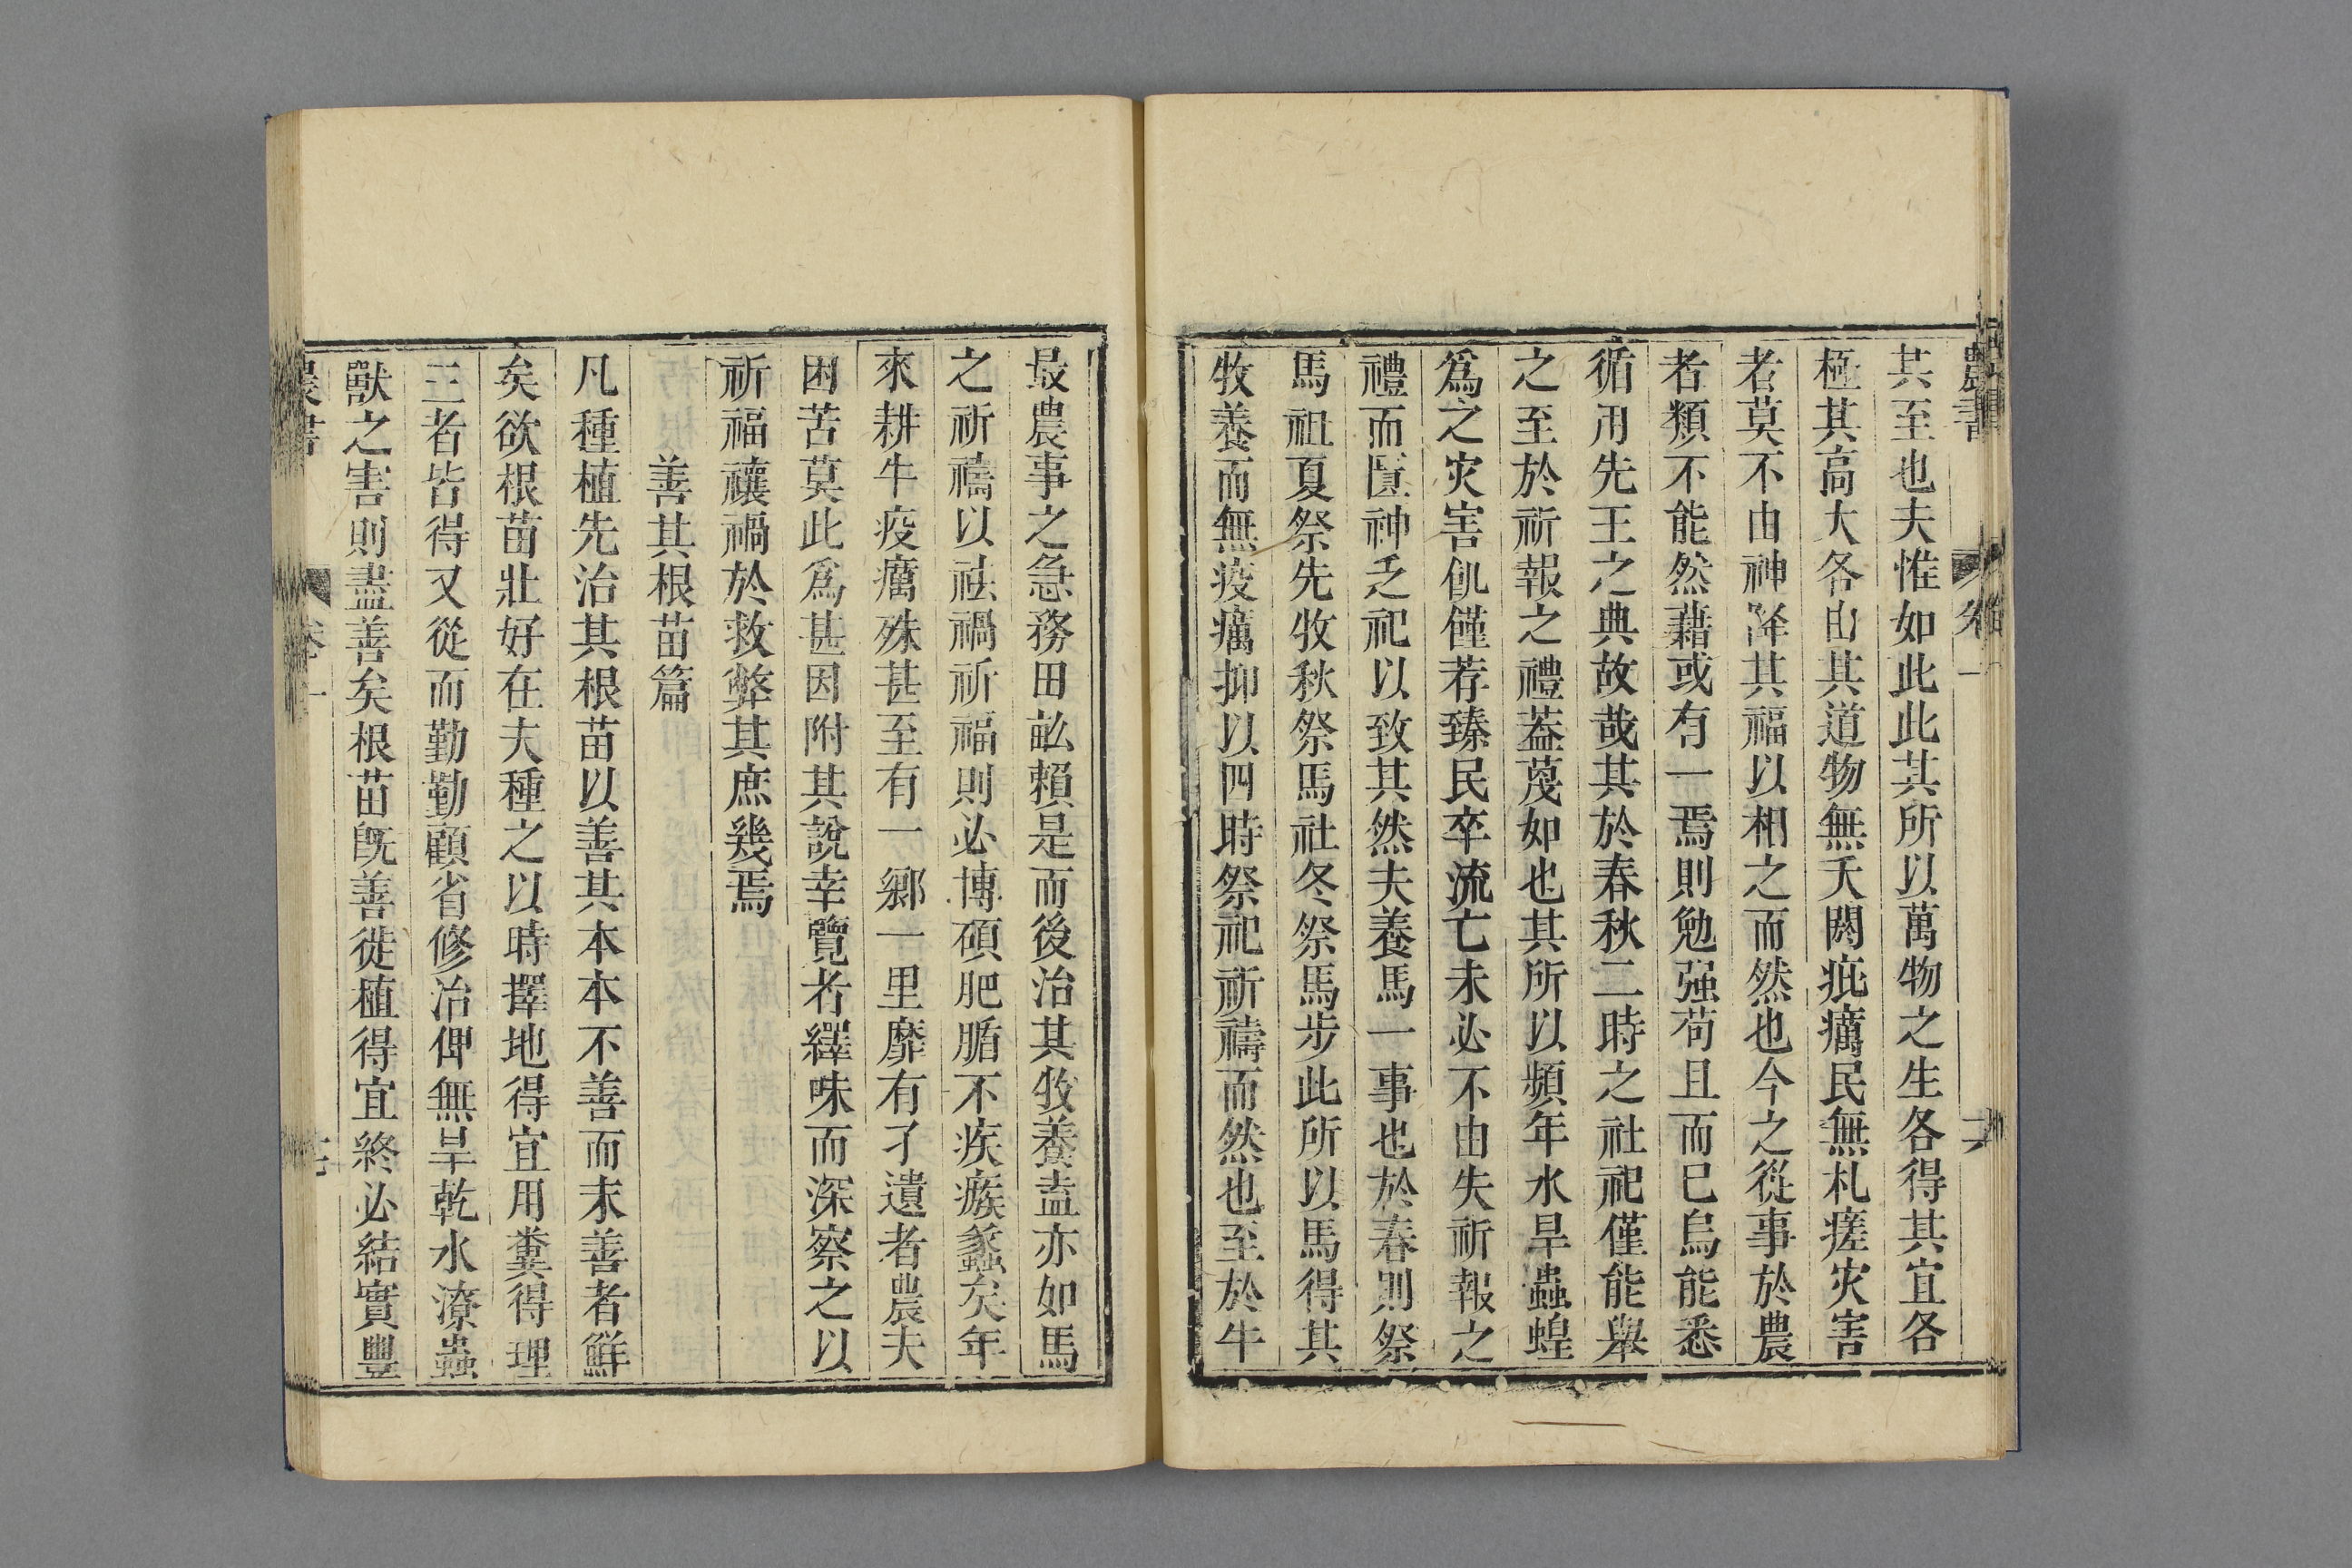 農書 卷一
其至也夫惟如此此其所以萬物之生各得其宜各
極其高大各由其道物無夭閼疵癘民無札瘥灾害
者莫不由神降其福以相之而然也今之從事於農
者類不能然藉或有一焉則勉强苟且而已烏能悉
循用先王之典故哉其於春秋二時之社祀僅能舉
之至於祈報之禮葢蔑如也其所以頻年水旱蟲蝗
爲之灾害飢饉荐臻民卒流亡未必不由失祈報之
禮而匱神乏祀以致其然夫養馬一事也於春則祭
馬祖夏祭先牧秋祭馬社冬祭馬步此所以馬得其
牧養而無疫癘抑以四時祭祀祈禱而然也至於牛
最農事之急務田畆賴是而後治其牧養盍亦如馬
之祈禱以祛禍祈福則必博碩肥腯不疾瘯蠡矣年
來耕牛疫癘殊甚至有一鄉一里靡有孑遺者農夫
困苦莫此爲甚因附其說幸覽者繹味而深察之以
祈福禳禍於救弊其庶幾焉
善其根苗篇
凡種植先治其根苗以善其本本不善而末善者鮮
矣欲根苗壯好在夫種之以時擇地得宜用糞得理
三者皆得又從而勤勤顧省修治俾無旱乾水潦蟲
獸之害則盡善矣根苗旣善徙植得宜終必結實豐
農書 卷一